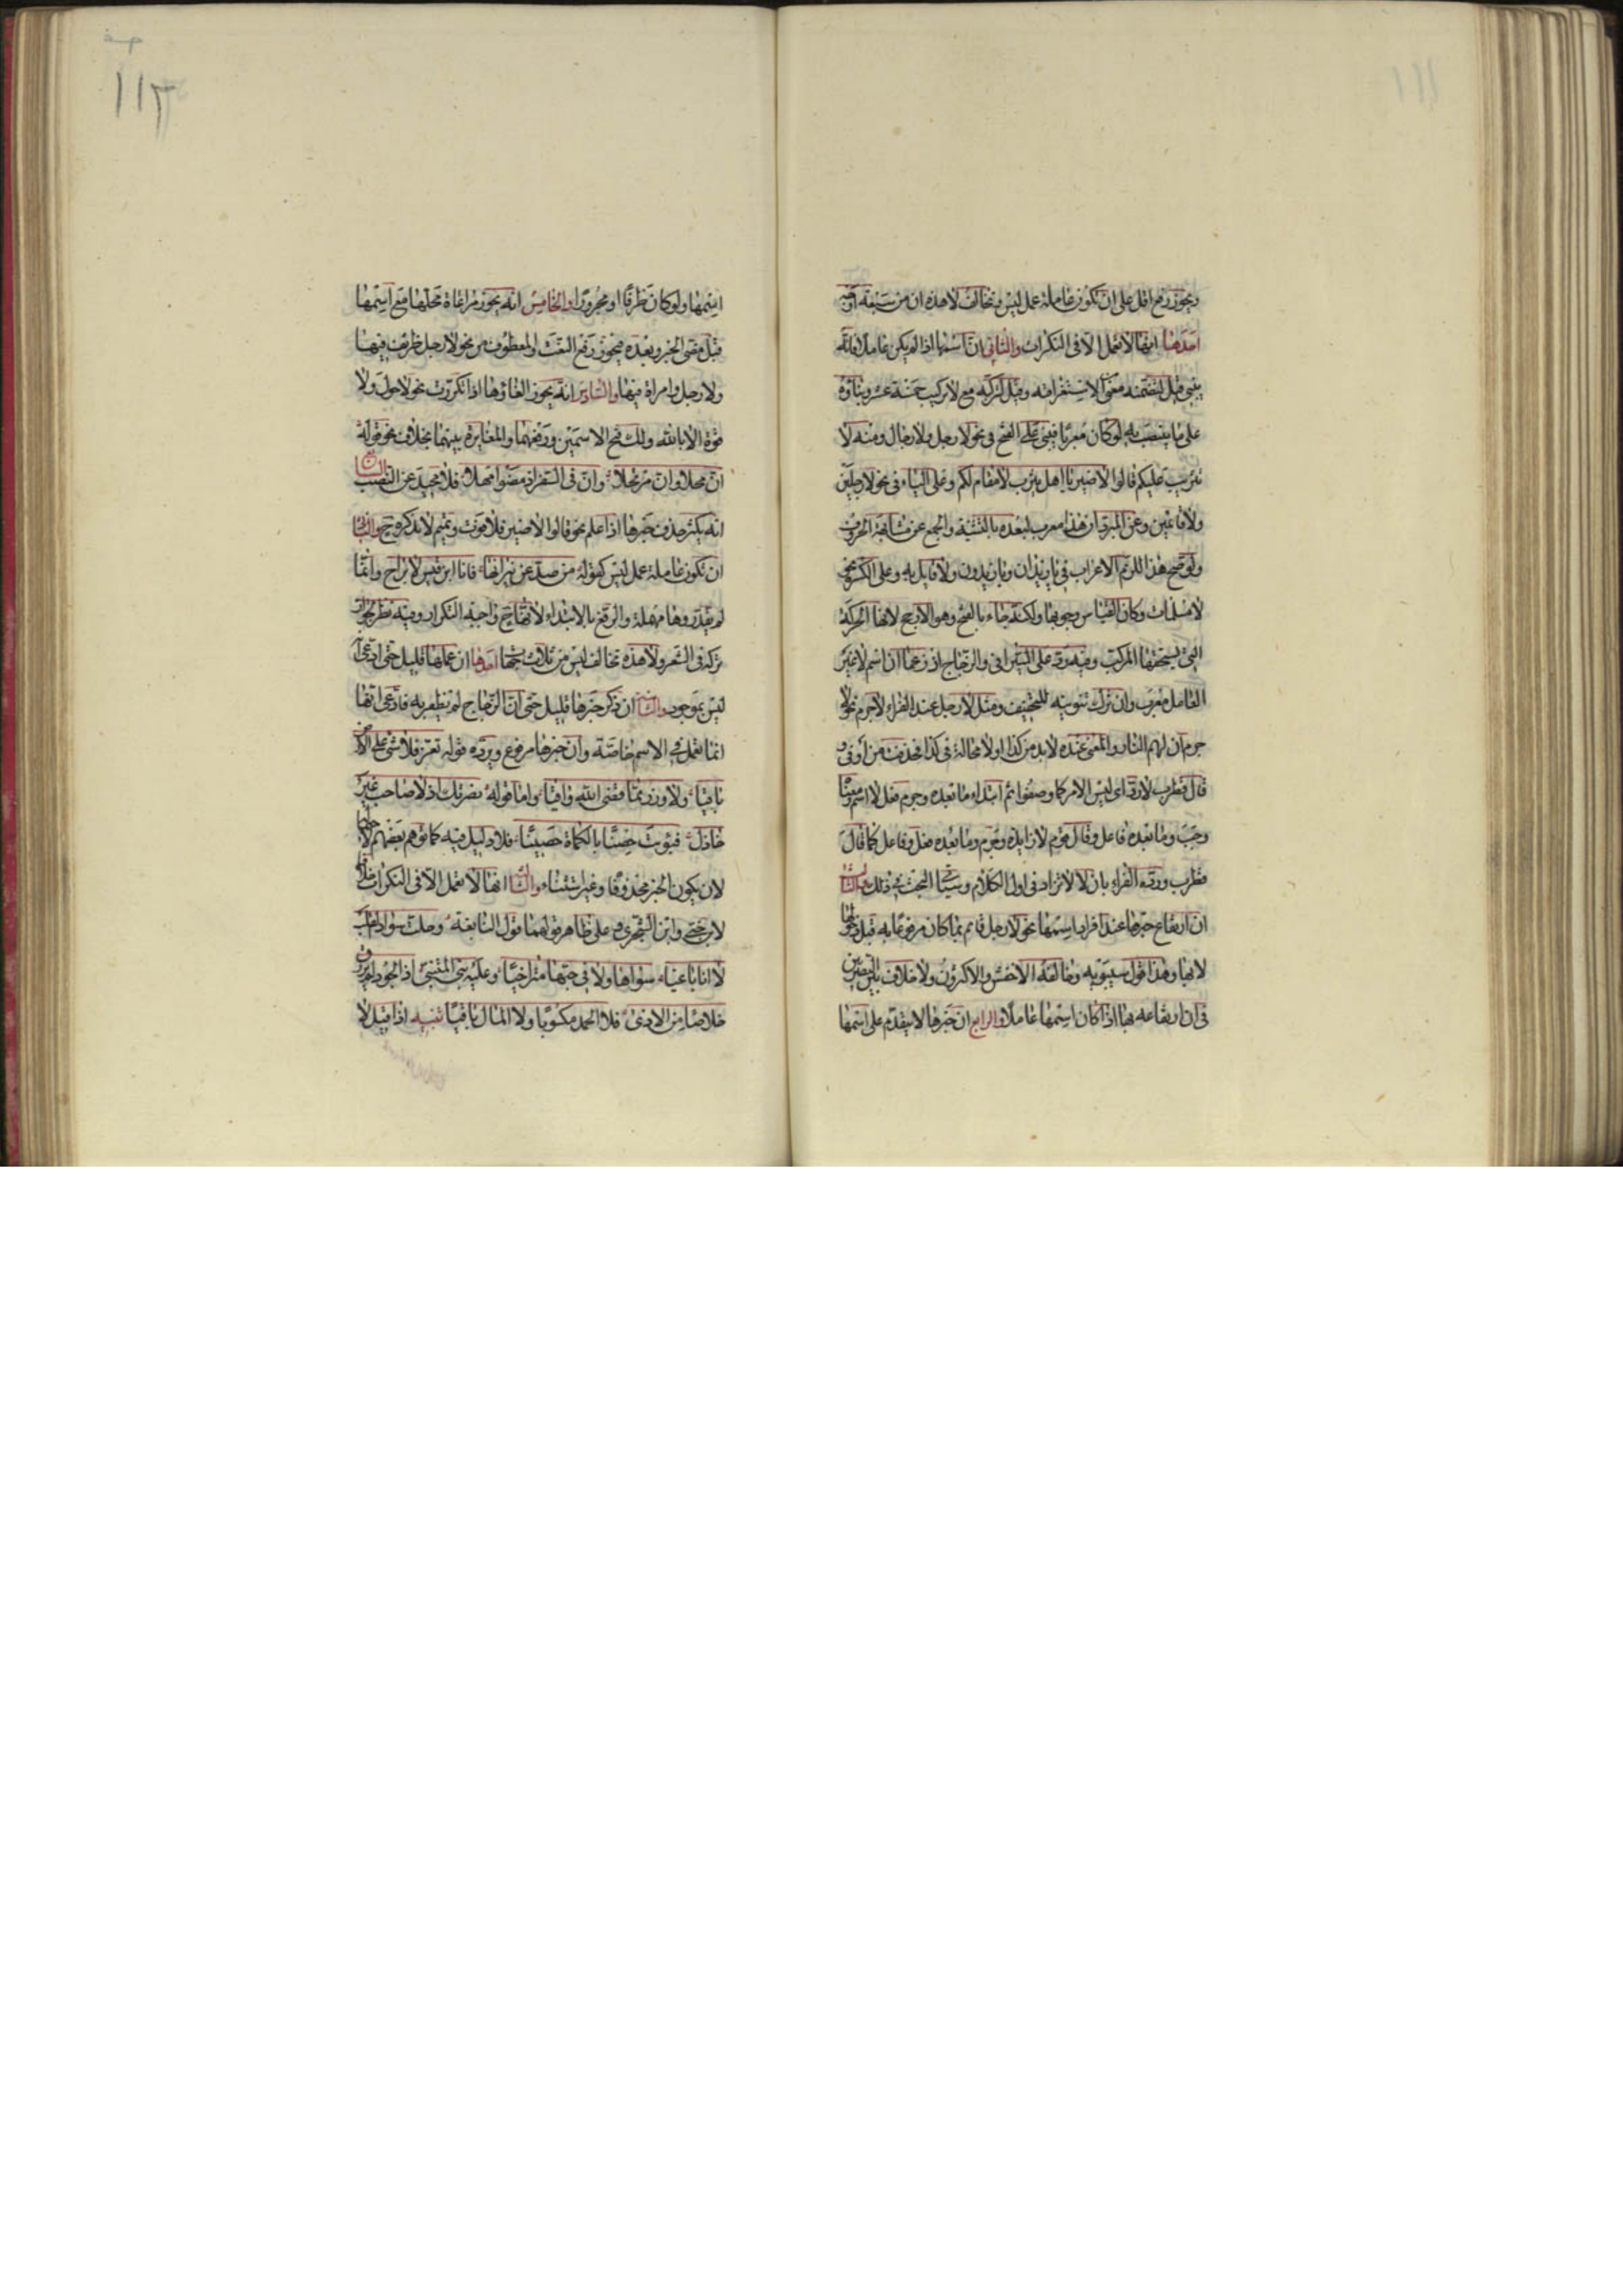 ويجوز رفع اقل على ان تكون عاملة عمل ليس وتخالف لا هذه ان من سبعة اوجه
احدها انها لا تعمل الا فى النكرات والثانى ان اسمها اذا لم يكن عاملا فانه
يبنى قيل لتضمنه معنى من الاستغراقية وقيل لتركبه مع لا تركيب خمسة عشر وبناؤه
على ما ينصب به لو كان معربا فيبنى على الفتح فى نحو لا رجل ولا رجال ومنه لا
تثريب عليكم قالوا لا ضير يا اهل يثرب لا مقام لكم وعلى الياء فى نحو لا رجلين
ولا قائمين وعن المبرد ان هذا معرب لبعده بالتثنية والجمع عن مشابهة الحروف
ولو صح هذا للزم الاعراب فى يا زيدان ويا زيدون ولا قايل به وعلى الكسرة فى نحو
لا مسلمات وكان القياس وجوبها ولكنه جاء بالفتح وهو الارجح لانها الحركة
التى يستحقها المركب وفيه رد على السيرافى والزجاج اذ زعما ان اسم لا غير
العامل معرب وان ترك تنوينه للتخفيف ومثل لا رجل عند الفراء لا جرم نحو لا
جرم ان لهم النار والمعنى عنده لا بد من كذا او لا محالة فى كذا فحذفت من او فى و
قال قطرب لا رد اى ليس الامر كما وصفوا ثم ابتداء ما بعده وجرم فعل لا اسم ومعناه
وجب وما بعده فاعل وقال قوم لا زايدة وجرم وما بعده فعل وفاعل كما قال
قطرب ورده الفراء بان لا لا تزاد فى اول الكلام وسياتى البحث فى ذلك والثالث
ان ارتفاع خبرها عند افراد اسمها نحو لا رجل قائم بما كان مرفوعا به قبل دخولها
لا بها وهذا قول سيبويه وخالفه الاخفش والاكثرون ولا خلاف بين البصريين
فى ان ارتفاعه بها اذا كان اسمها عاملا والرابع ان خبرها لا يتقدم على اسمها
اسمها ولو كان ظرفا او مجرورا والخامس انه يجوز مراعاة محلها مع اسمها
قبل مضى الخبر وبعده فيجوز رفع النعت والمعطوف من نحو لا رجل ظريف فيها
ولا رجل وامراة فيها والسادس انه يجوز الغاؤها اذا تكررت نحو لا حول ولا
قوة الا بالله ولك فتح الاسمين ورفعهما والمغايرة بينهما بخلاف نحو قوله
ان محلا وان مرتحلا وان فى السفر اذ مضوا مهلا فلا محيد عن النصب السابع
انه يكثر حذف خبرها اذا علم نحو قالوا لا ضير فلا فوت وتميم لا تذكره ح والثانى
ان تكون عاملة عمل ليس كقوله من صد عن نيرانها فانا ابن قيس لا براح وانما
لم يقدروها مهملة والرفع بالابتداء لانها ح واجبة التكرار وفيه نظر لجواز
تركه فى الشعر ولا هذه تخالف ليس من ثلاث جهات احدها ان عملها قليل حتى ادعى انه
ليس بموجود والثانية ان ذكر خبرها قليل حتى ان الزجاج لم يظفر به فادعى انها
انما تعمل فى الاسم خاصة وان خبرها مرفوع ويرده قوله تعز فلا شئ على الارض
باقيا ولا وزر مما قضى الله واقيا واما قوله نصرتك اذ لا صاحب غير
خاذل فبوئت حصنا بالكماة حصينا فلا دليل فيه كما توهم بعضهم لاحتمال
لان يكون الخبر محذوفا وغير استثناء والثالثة انها لا تعمل الا فى النكرات خلافا
لابن جنى وابن الشجرى على ظاهر قولهما قول النابغة وحلت سواد القلب
لا انا باغيا سواها ولا فى حبها متراخيا وعليه بنى المتنبى اذا الجود لم يرزق
خلاصا من الاذى فلا الحمد مكسوبا ولا المال باقيا تنبيه اذا قيل لا